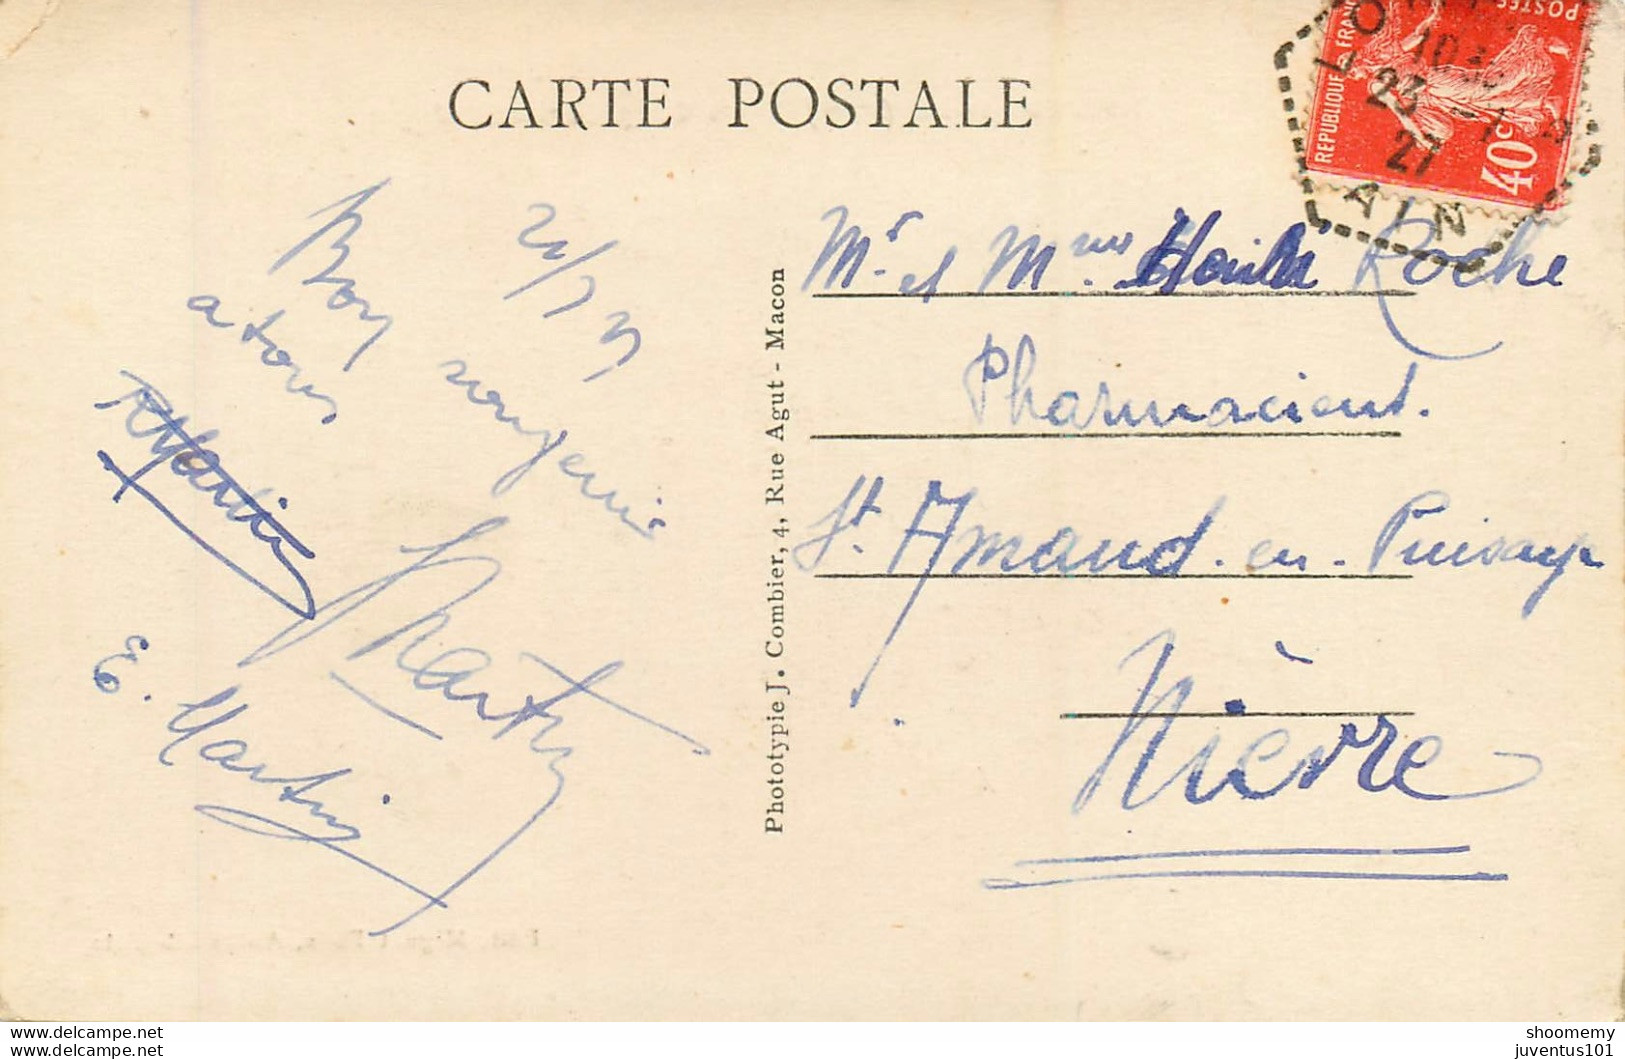 CARTE POSTALE
REPUBLIQUE FRANC
POSTES
40c
23
27
AIN
Bon souvenir
a tous
R Martin
Martin
E. Martin
Phototypie J. Combier, 4, Rue Agut - Macon
Mr. et Mme Roche
Pharmacient.
St. Amand-en-Puisaye
Nièvre
www.delcampe.net
www.delcampe.net
shoomemy
juventus101